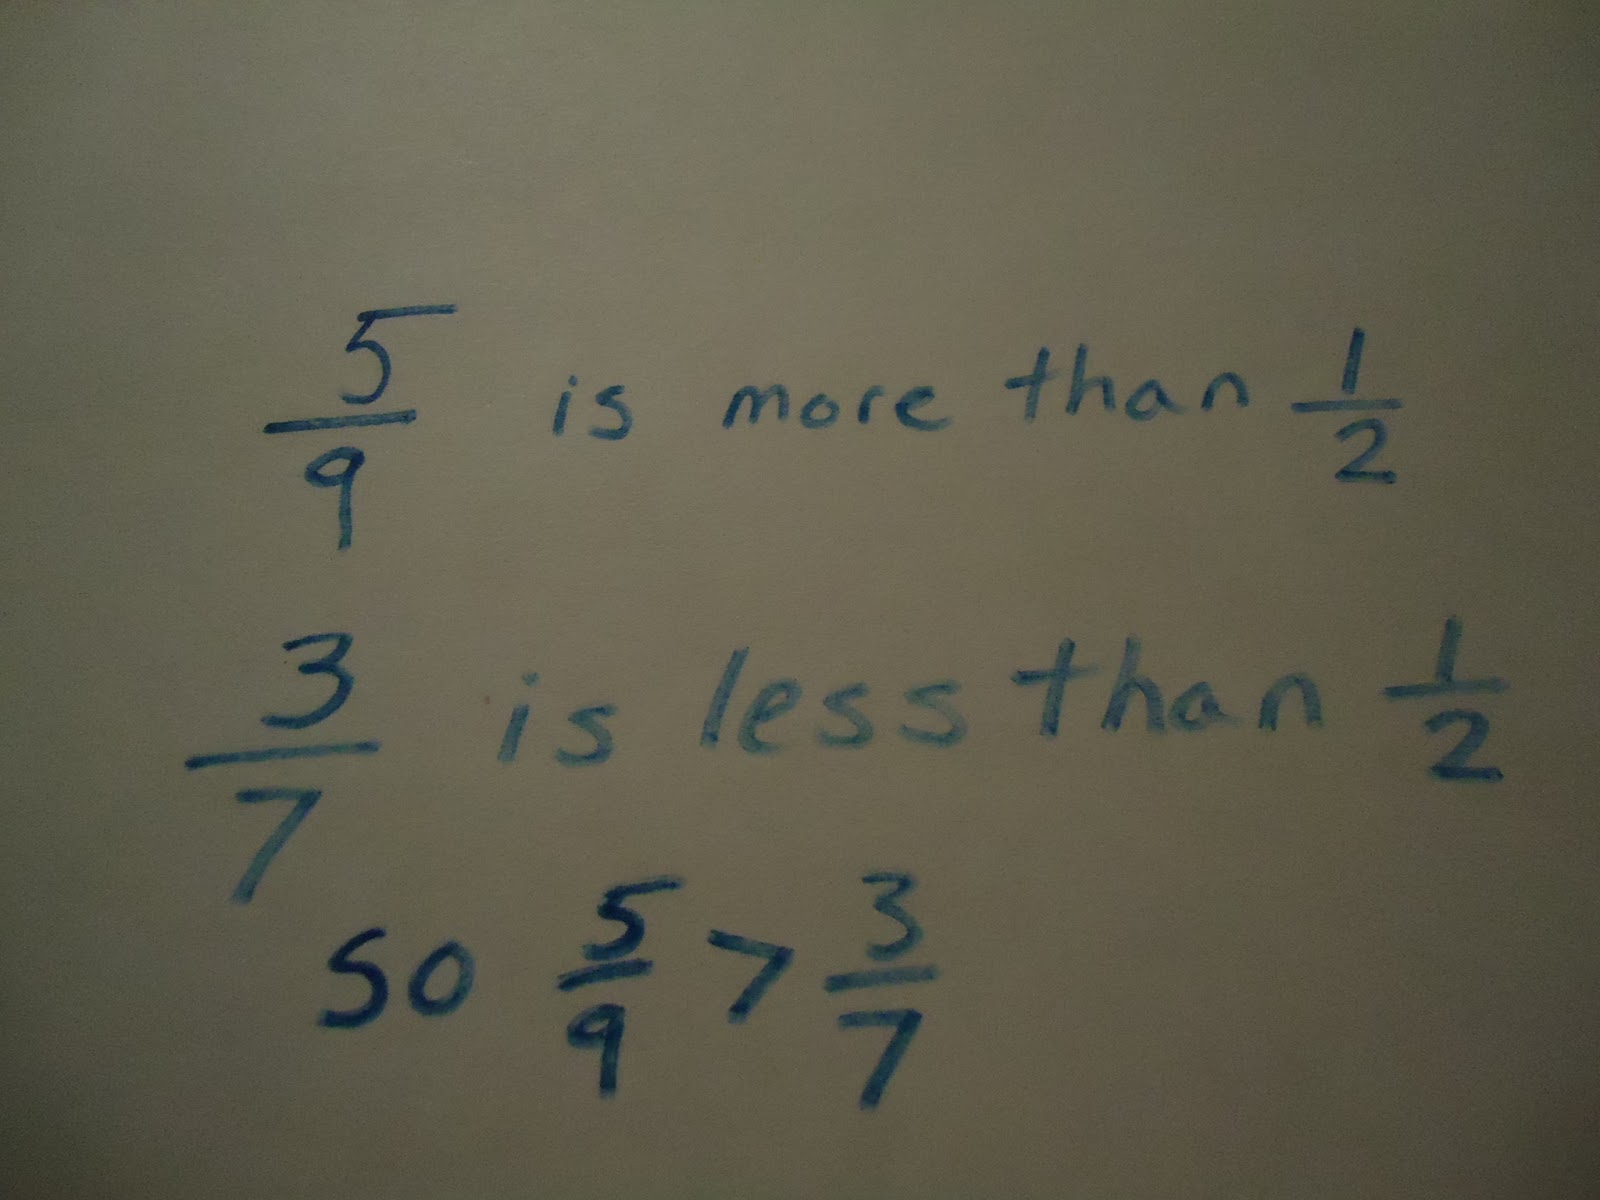 5/9 is more than 1/2
3/7 is less than 1/2
so 5/9 > 3/7